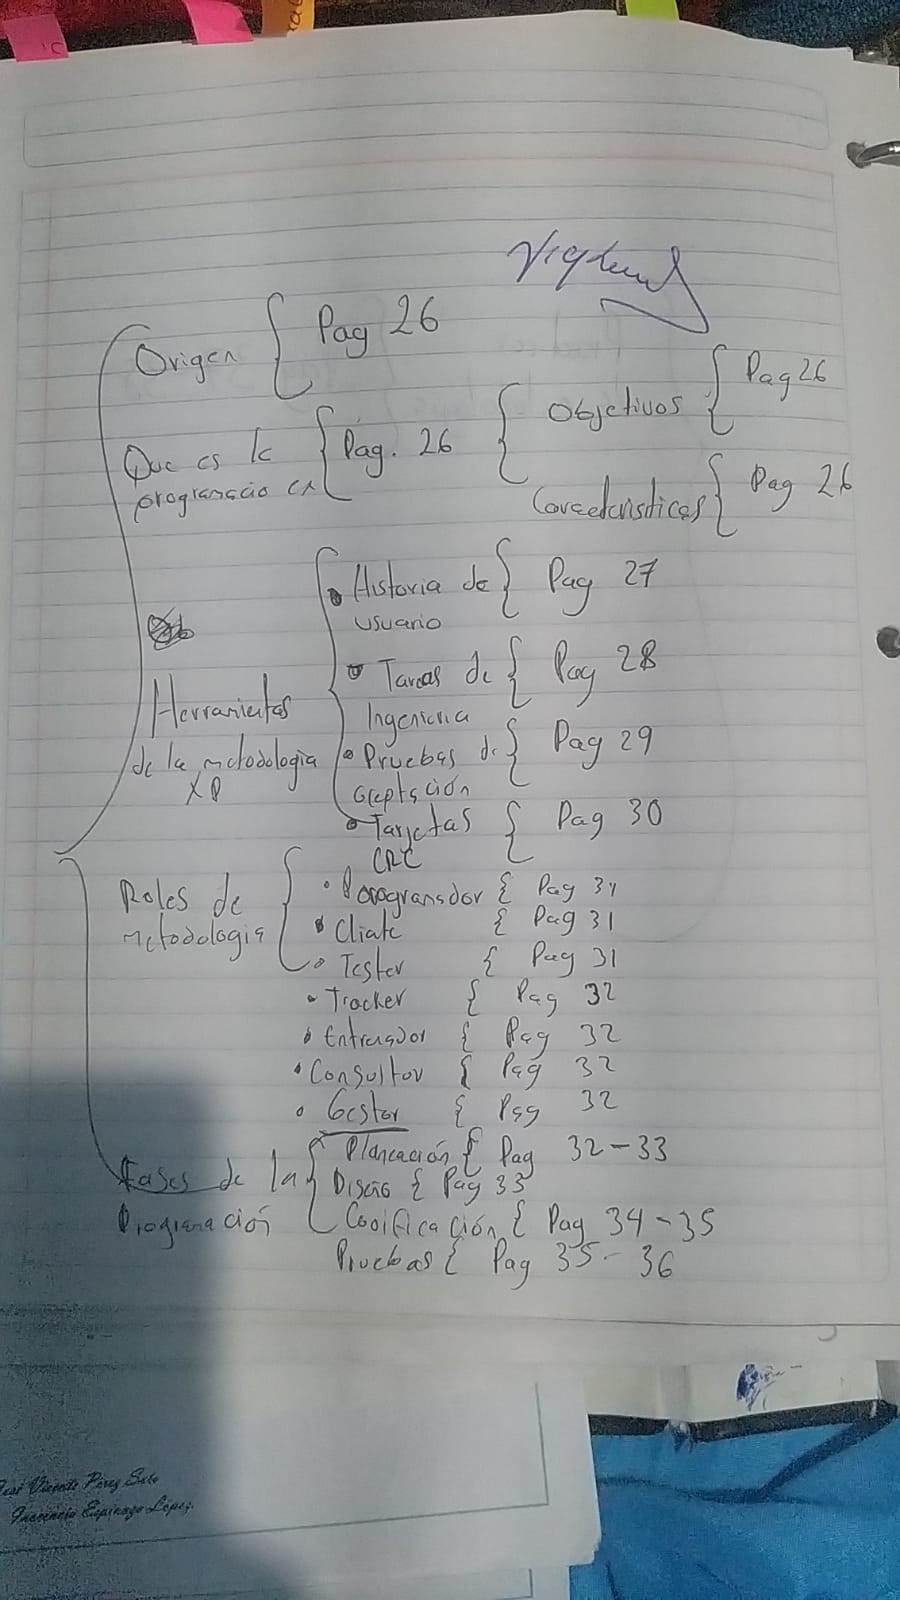 Origen { Pag 26
Que es la programacio en { Pág. 26 { Objetivos { Pag 26
Caracteristicas { Pag 26
Herramientas de la metodologia XP
• Historia de usuario { Pag 27
• Tareas de Ingenieria { Pag 28
• Pruebas de aceptación { Pag 29
• Tarjetas CRC { Pag 30
Roles de metodologia
• Programador { Pag 31
• Cliente { Pag 31
• Tester { Pag 31
• Tracker { Pag 32
• Entrenador { Pag 32
• Consultor { Pag 32
• Gestor { Pag 32
Fases de la Programación
Planeación { Pag 32-33
Diseño { Pag 33
Codificación { Pag 34-35
Pruebas { Pag 35-36
José Vicente Pérez Soto
Inocencio Espinoza López.